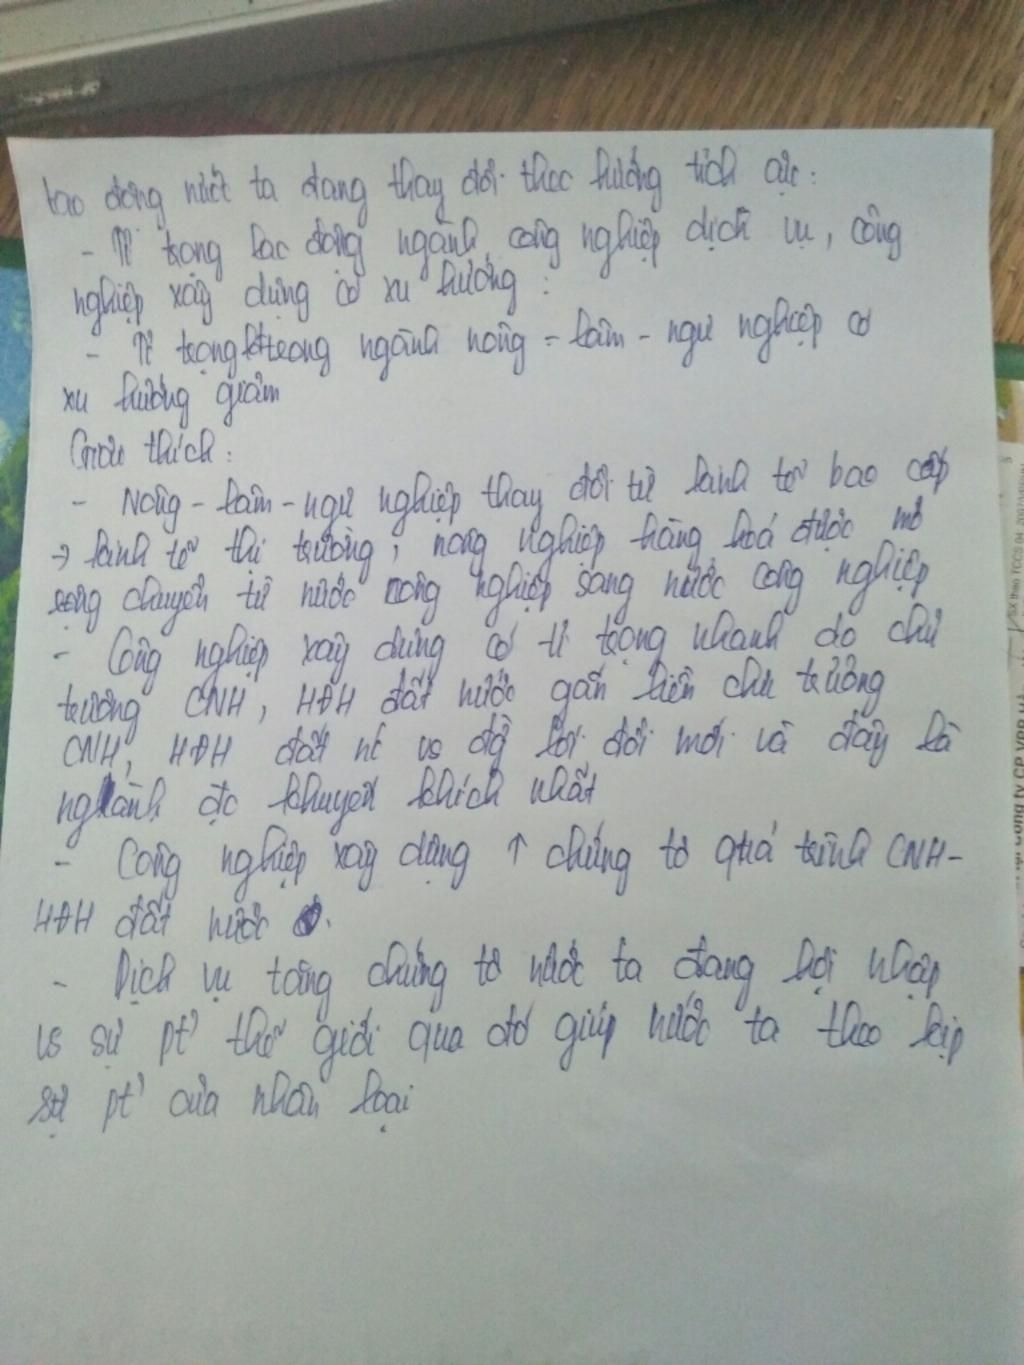 lao động nước ta đang thay đổi theo hướng tích cực:
- Tỉ trọng lao động ngành công nghiệp dịch vụ, công
nghiệp xây dựng có xu hướng :
- Tỉ trọng trong ngành nông - lâm - ngư nghiệp có
xu hướng giảm
Giải thích:
- Nông - lâm - ngư nghiệp thay đổi từ kinh tế bao cấp
→ kinh tế thị trường, nông nghiệp hàng hoá được mở
rộng chuyển từ nước nông nghiệp sang nước công nghiệp
- Công nghiệp xây dựng có tỉ trọng nhanh do chủ
trương CNH, HĐH đất nước gắn liền chủ trương
CNH, HĐH đất nc vs đg lối đổi mới và đây là
ngành đc khuyến khích nhất
- Công nghiệp xây dựng ↑ chứng tỏ quá trình CNH-
HĐH đất nước
- Dịch vụ tăng chứng tỏ nước ta đang hội nhập
vs sự pt' thế giới qua đó giúp nước ta theo kịp
sự pt' của nhân loại